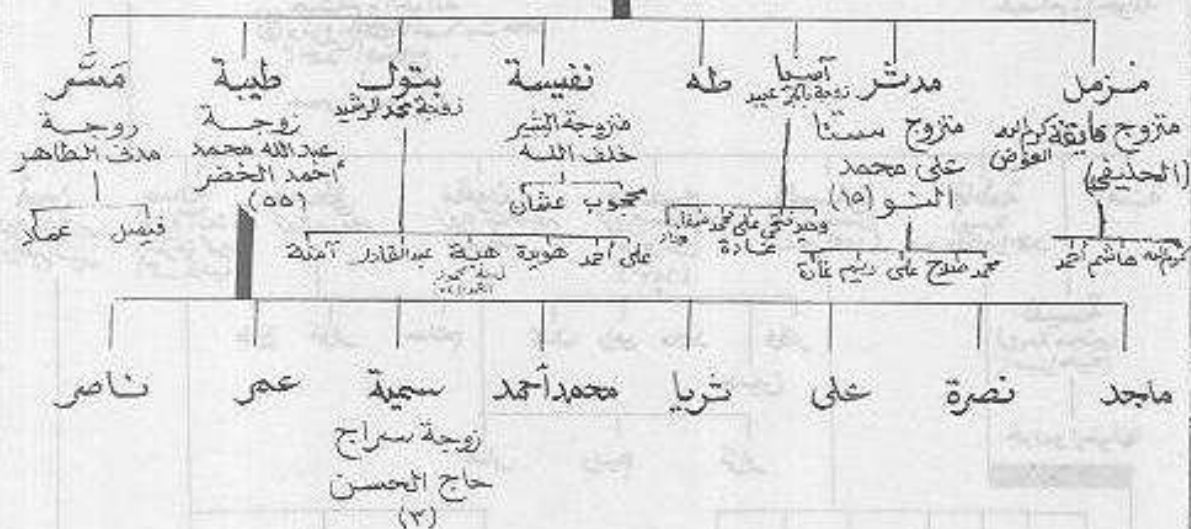 مزمل
متزوج فايقة كرم الله
العوض
(الحليفي)
كرم الله هاشم أحمد
مدثر
متزوج ستنا
على محمد
النو (١٥)
محمد صلاح على ريم غادة
آسيا
وحيد فتحي على محمد
غادة
طه
نفيسة
متزوجة البشير
خلف الله
محجوب عثمان
بتول
زوجة محمد الرشيد
على أحمد هويدة هبة عبدالقادر آمنة
طيبة
زوجة
عبدالله محمد
أحمد الخضر
(٥٥)
مَسَّر
زوجة
مدث الطاهر
فيصل عماد
ماجد
نصرة
على
ثريا
محمد أحمد
سمية
زوجة سراج
حاج الحسن
(٣)
عمر
ناصر